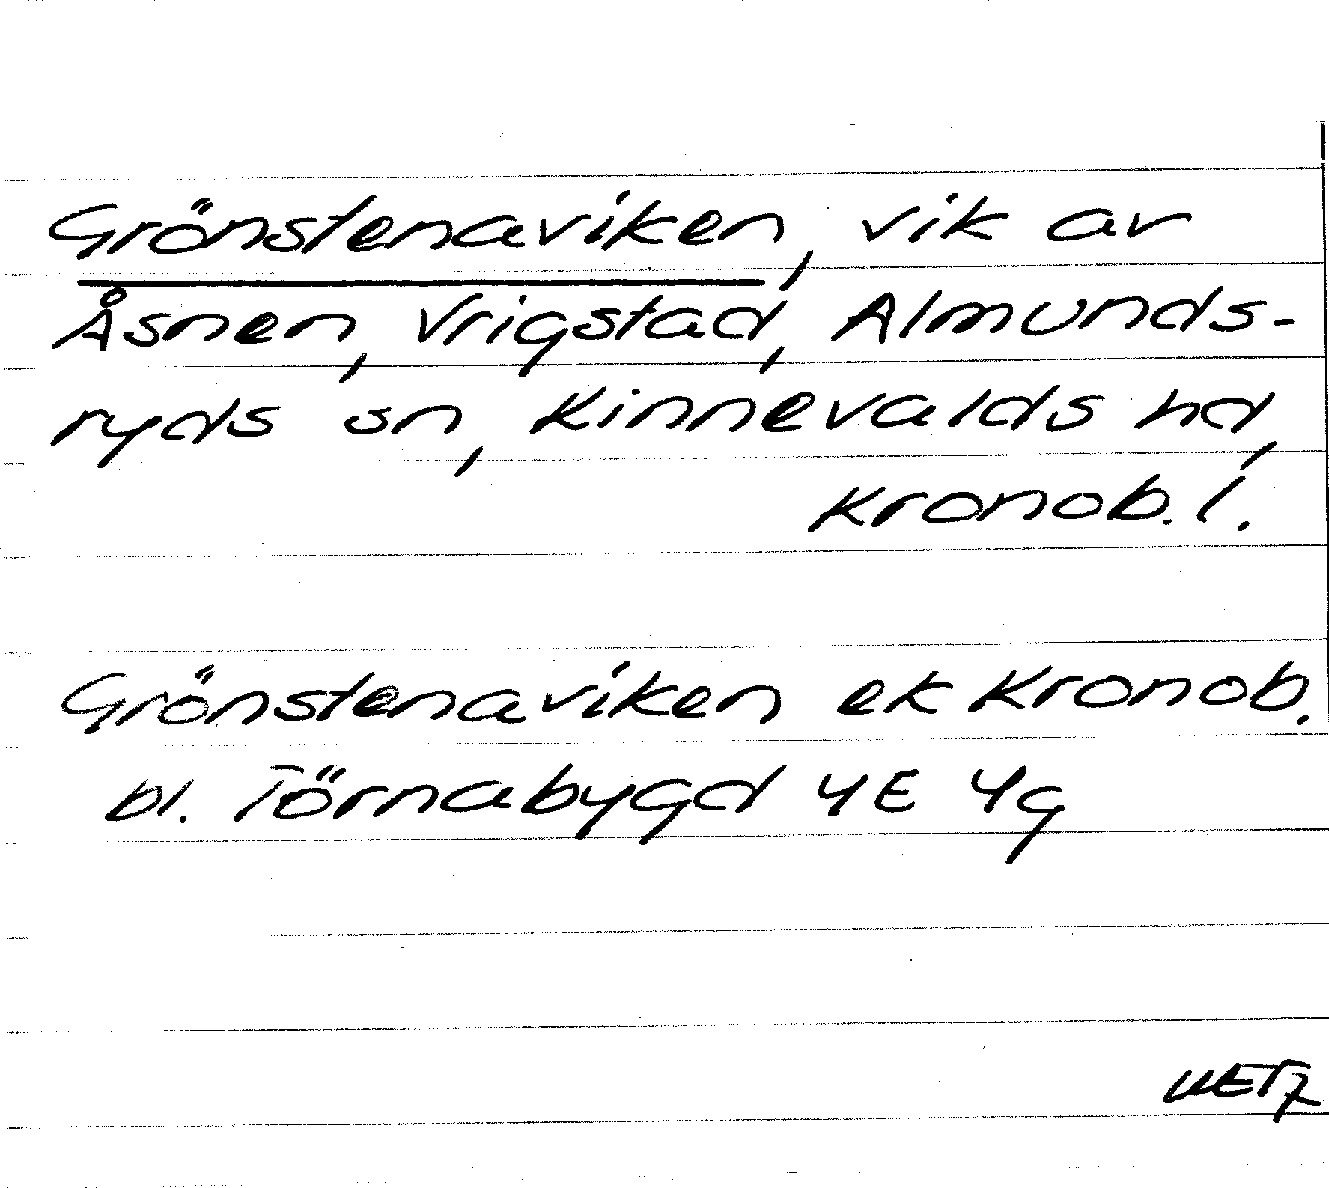 Grönstenaviken, vik av
Åsnen, Vrigstad, Almunds-
ryds sn, Kinnevalds hd,
Kronob. l.
Grönstenaviken ek Kronob.
bl. Törnabygd 4E 4g